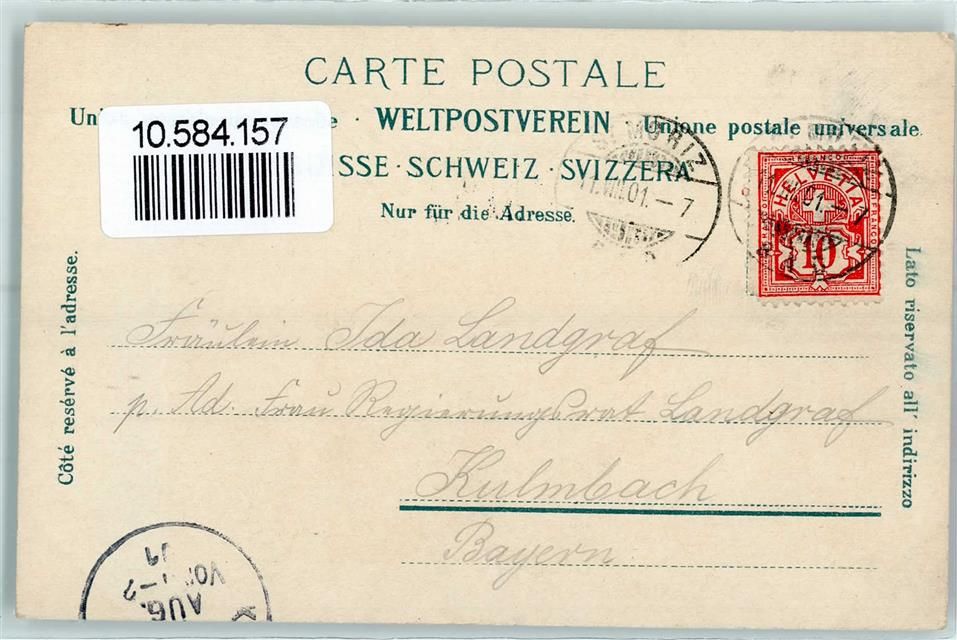 CARTE POSTALE
10.584.157
Uni e · WELTPOSTVEREIN Unione postale universale.
SSE · SCHWEIZ · SVIZZERA
Nur für die Adresse.
MORIZ
11.VIII.01.–7
HELVETIA
FRANCO
10
Côté reservé à l'adresse.
Lato riservato all' indirizzo
Fräulein Ida Landgraf
p. Ad. Frau Regierungsrat Landgraf
Kulmbach
Bayern
K
AUG.
VOR